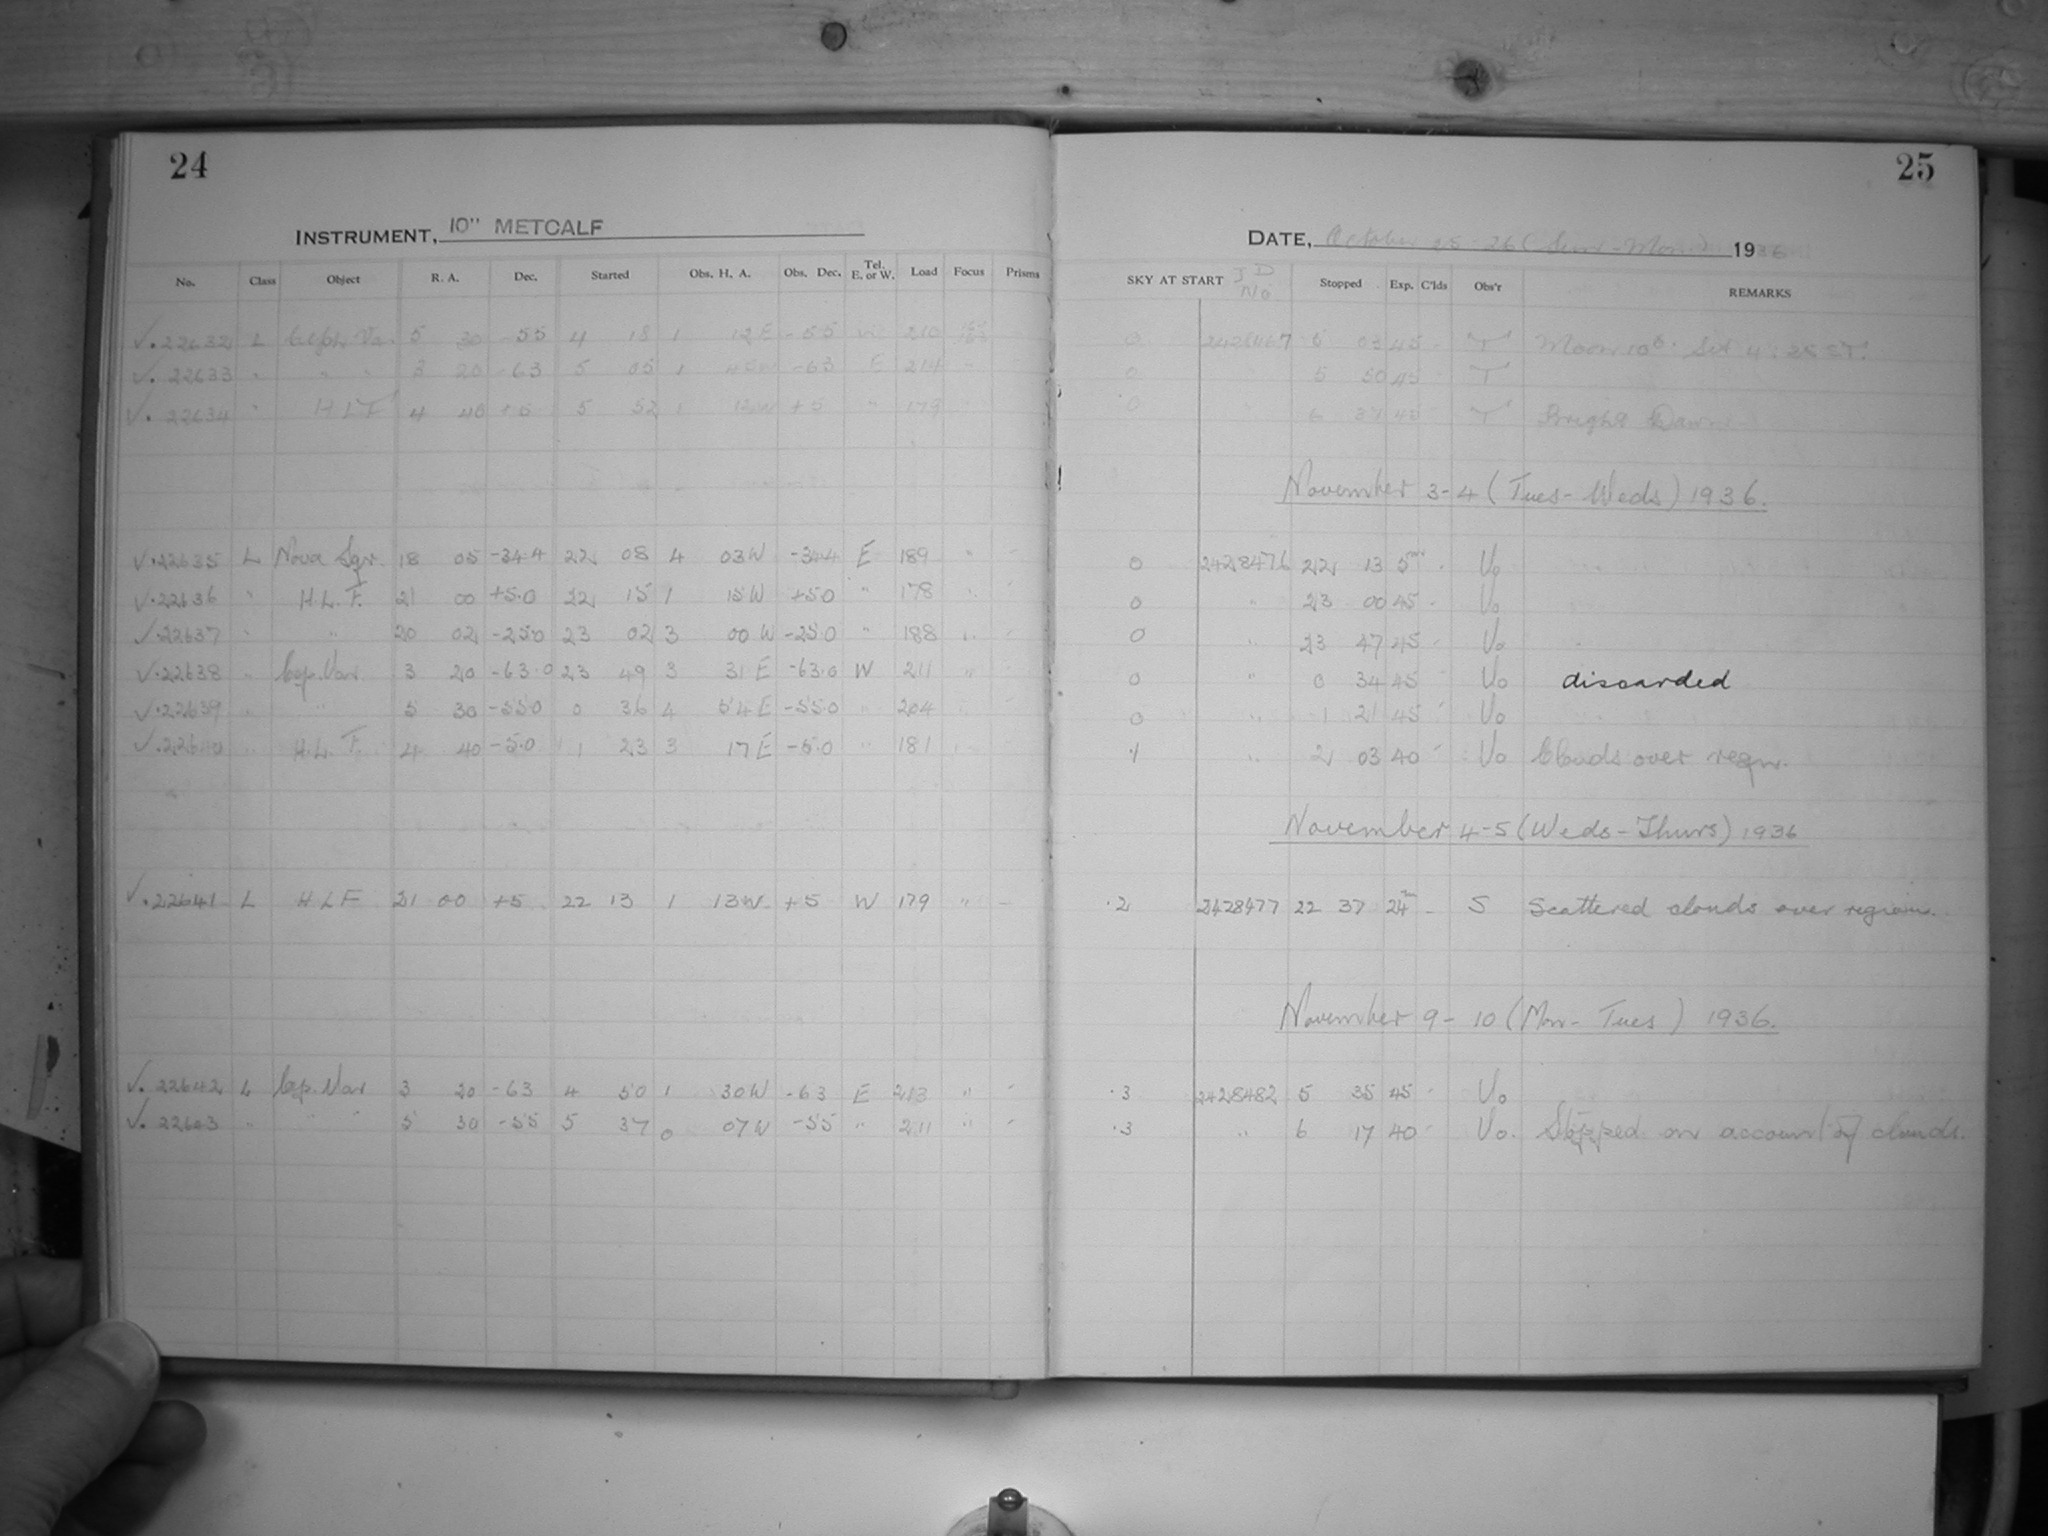 24
INSTRUMENT, 10" METCALF
No. Class Object R. A. Dec. Started Obs. H. A. Obs. Dec. Tel. E. or W. Load Focus Prisms
√. 22632 L 5 30 -55 4 18 1 12 E -55 W 210
√. 22633 " " " 3 20 -63 5 05 1 -63 E 214
√. 22634 " H L F 4 40 +5 5 52 1 12 W +5 " 179
√. 22635 L Nova Sgr. 18 05 -34.4 22 08 4 03 W -34.4 E 189 " -
√. 22636 " H. L. F. 21 00 +5.0 22 15 1 15 W +5.0 " 178 " -
√. 22637 " " 20 02 -25.0 23 02 3 00 W -25.0 " 188 " -
√. 22638 " Cep. Var. 3 20 -63.0 23 49 3 31 E -63.0 W 211 " -
√. 22639 " " 5 30 -55.0 0 36 4 54 E -55.0 " 204 " -
√. 22640 " H. L. F. 4 40 -5.0 1 23 3 17 E -5.0 " 181 " -
√. 22641 L H L F 21 00 +5 22 13 1 13 W +5 W 179 " -
√. 22642 L Cep. Var 3 20 -63 4 50 1 30 W -63 E 213 " -
√. 22643 " " " 5 30 -55 5 37 0 07 W -55 " 211 " -
25
DATE, October 25-26 (Sun-Mon) 1936
SKY AT START J D No Stopped Exp. C'lds Obs'r REMARKS
0 2428467 5 03 45 T Moon 10°. Set 4:28 ST.
0 " 5 50 45 T
0 " 6 37 45 T Bright Dawn
November 3-4 (Tues-Weds) 1936.
0 2428476 22 13 5m - Vo
0 " 23 00 45 - Vo
0 " 23 47 45 - Vo
0 " 0 34 45 - Vo discarded
0 " 1 21 45 - Vo
.1 " 2 03 40 - Vo Clouds over regn.
November 4-5 (Weds-Thurs) 1936
.2 2428477 22 37 24m - S Scattered clouds over region.
November 9-10 (Mon-Tues) 1936.
.3 2428482 5 35 45 - Vo
.3 " 6 17 40 - Vo. Stopped on account of clouds.